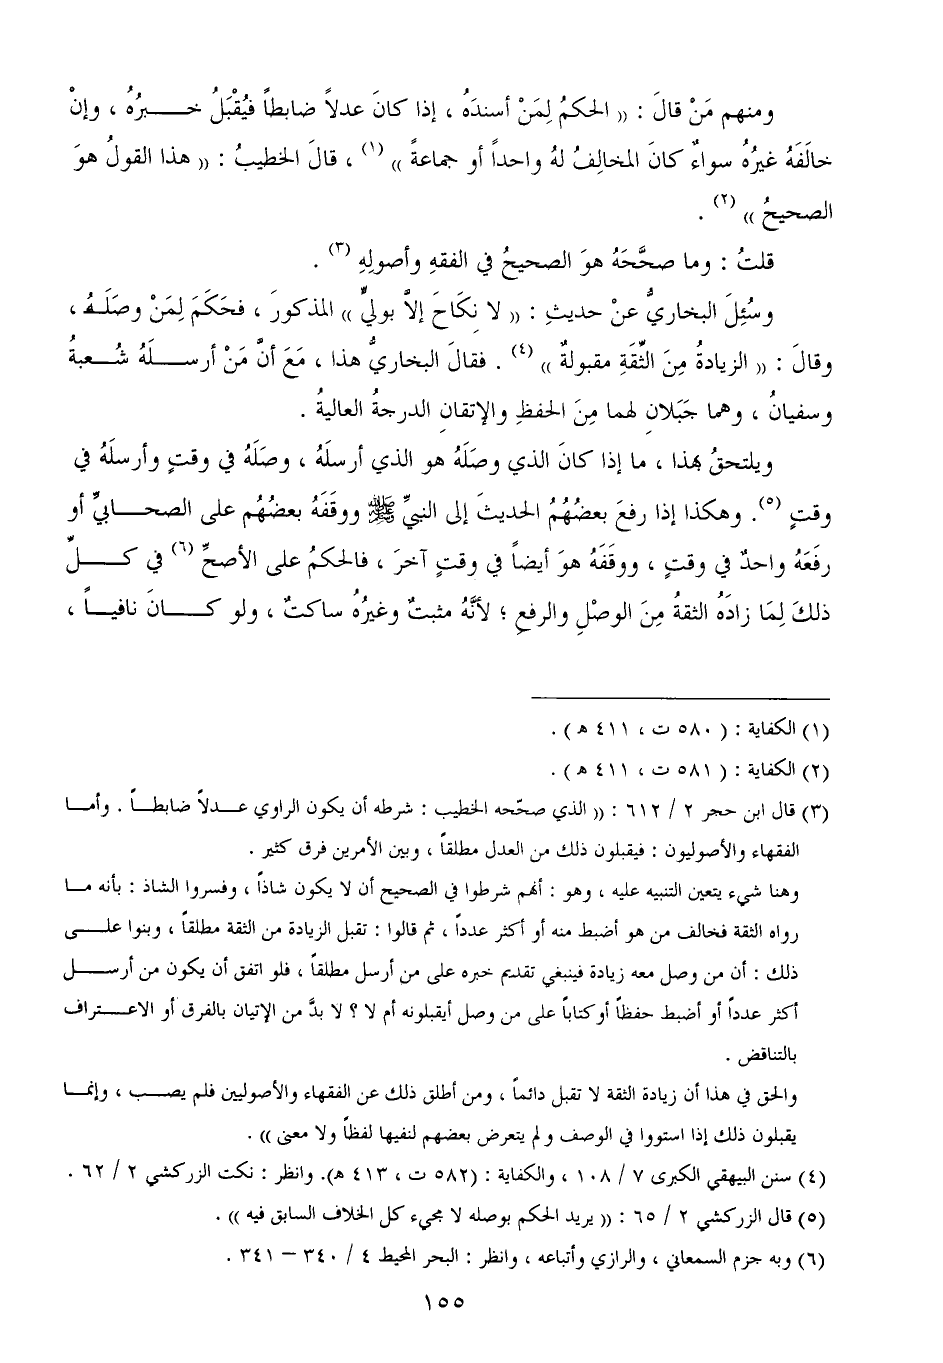 ومنهم مَنْ قالَ : (( الحكمُ لِمَنْ أسندَهُ ، إذا كانَ عدلاً ضابطاً فيُقْبَلُ خبرُهُ ، وإنْ
خالَفَهُ غيرُهُ سواءٌ كانَ المخالِفُ لهُ واحداً أو جماعةً )) (١) ، قالَ الخطيبُ : (( هذا القولُ هوَ
الصحيحُ )) (٢) .
قلتُ : وما صحَّحَهُ هوَ الصحيحُ في الفقهِ وأصولِهِ (٣) .
وسُئِلَ البخاريُّ عنْ حديثِ : (( لا نِكَاحَ إلاَّ بوليٍّ )) المذكورَ ، فحَكَمَ لِمَنْ وصلَهُ ،
وقالَ : (( الزيادةُ مِنَ الثِّقَةِ مقبولةٌ )) (٤) . فقالَ البخاريُّ هذا ، مَعَ أنَّ مَنْ أرسلَهُ شُعبةُ
وسفيانُ ، وهما جَبَلانِ لهما مِنَ الحفظِ والإتقانِ الدرجةُ العاليةُ .
ويلتحقُ بهذا ، ما إذا كانَ الذي وصَلَهُ هو الذي أرسلَهُ ، وصَلَهُ في وقتٍ وأرسلَهُ في
وقتٍ (٥). وهكذا إذا رفعَ بعضُهُمُ الحديثَ إلى النبيِّ ﷺ ووقَفَهُ بعضُهُم على الصحابيِّ أو
رفَعَهُ واحدٌ في وقتٍ ، ووقَفَهُ هوَ أيضاً في وقتٍ آخرَ ، فالحكمُ على الأصحِّ (٦) في كلِّ
ذلكَ لِمَا زادَهُ الثقةُ مِنَ الوصْلِ والرفعِ ؛ لأنَّهُ مثبتٌ وغيرُهُ ساكتٌ ، ولو كانَ نافياً ،
(١) الكفاية : ( ٥٨٠ ت ، ٤١١ هـ ) .
(٢) الكفاية : ( ٥٨١ ت ، ٤١١ هـ ) .
(٣) قال ابن حجر ٢ / ٦١٢ : (( الذي صحّحه الخطيب : شرطه أن يكون الراوي عدلاً ضابطاً . وأما
الفقهاء والأصوليون : فيقبلون ذلك من العدل مطلقاً ، وبين الأمرين فرق كثير .
وهنا شيء يتعين التنبيه عليه ، وهو : أنهم شرطوا في الصحيح أن لا يكون شاذاً ، وفسروا الشاذ : بأنه ما
رواه الثقة فخالف من هو أضبط منه أو أكثر عدداً ، ثم قالوا : تقبل الزيادة من الثقة مطلقاً ، وبنوا على
ذلك : أن من وصل معه زيادة فينبغي تقديم خبره على من أرسل مطلقاً ، فلو اتفق أن يكون من أرسل
أكثر عدداً أو أضبط حفظاً أو كتاباً على من وصل أيقبلونه أم لا ؟ لا بدَّ من الإتيان بالفرق أو الاعتراف
بالتناقض .
والحق في هذا أن زيادة الثقة لا تقبل دائماً ، ومن أطلق ذلك عن الفقهاء والأصوليين فلم يصب ، وإنما
يقبلون ذلك إذا استووا في الوصف ولم يتعرض بعضهم لنفيها لفظاً ولا معنى )) .
(٤) سنن البيهقي الكبرى ٧ / ١٠٨ ، والكفاية : (٥٨٢ ت ، ٤١٣ هـ). وانظر : نكت الزركشي ٢ / ٦٢ .
(٥) قال الزركشي ٢ / ٦٥ : (( يريد الحكم بوصله لا مجيء كل الخلاف السابق فيه )) .
(٦) وبه جزم السمعاني ، والرازي وأتباعه ، وانظر : البحر المحيط ٤ / ٣٤٠ – ٣٤١ .
١٥٥